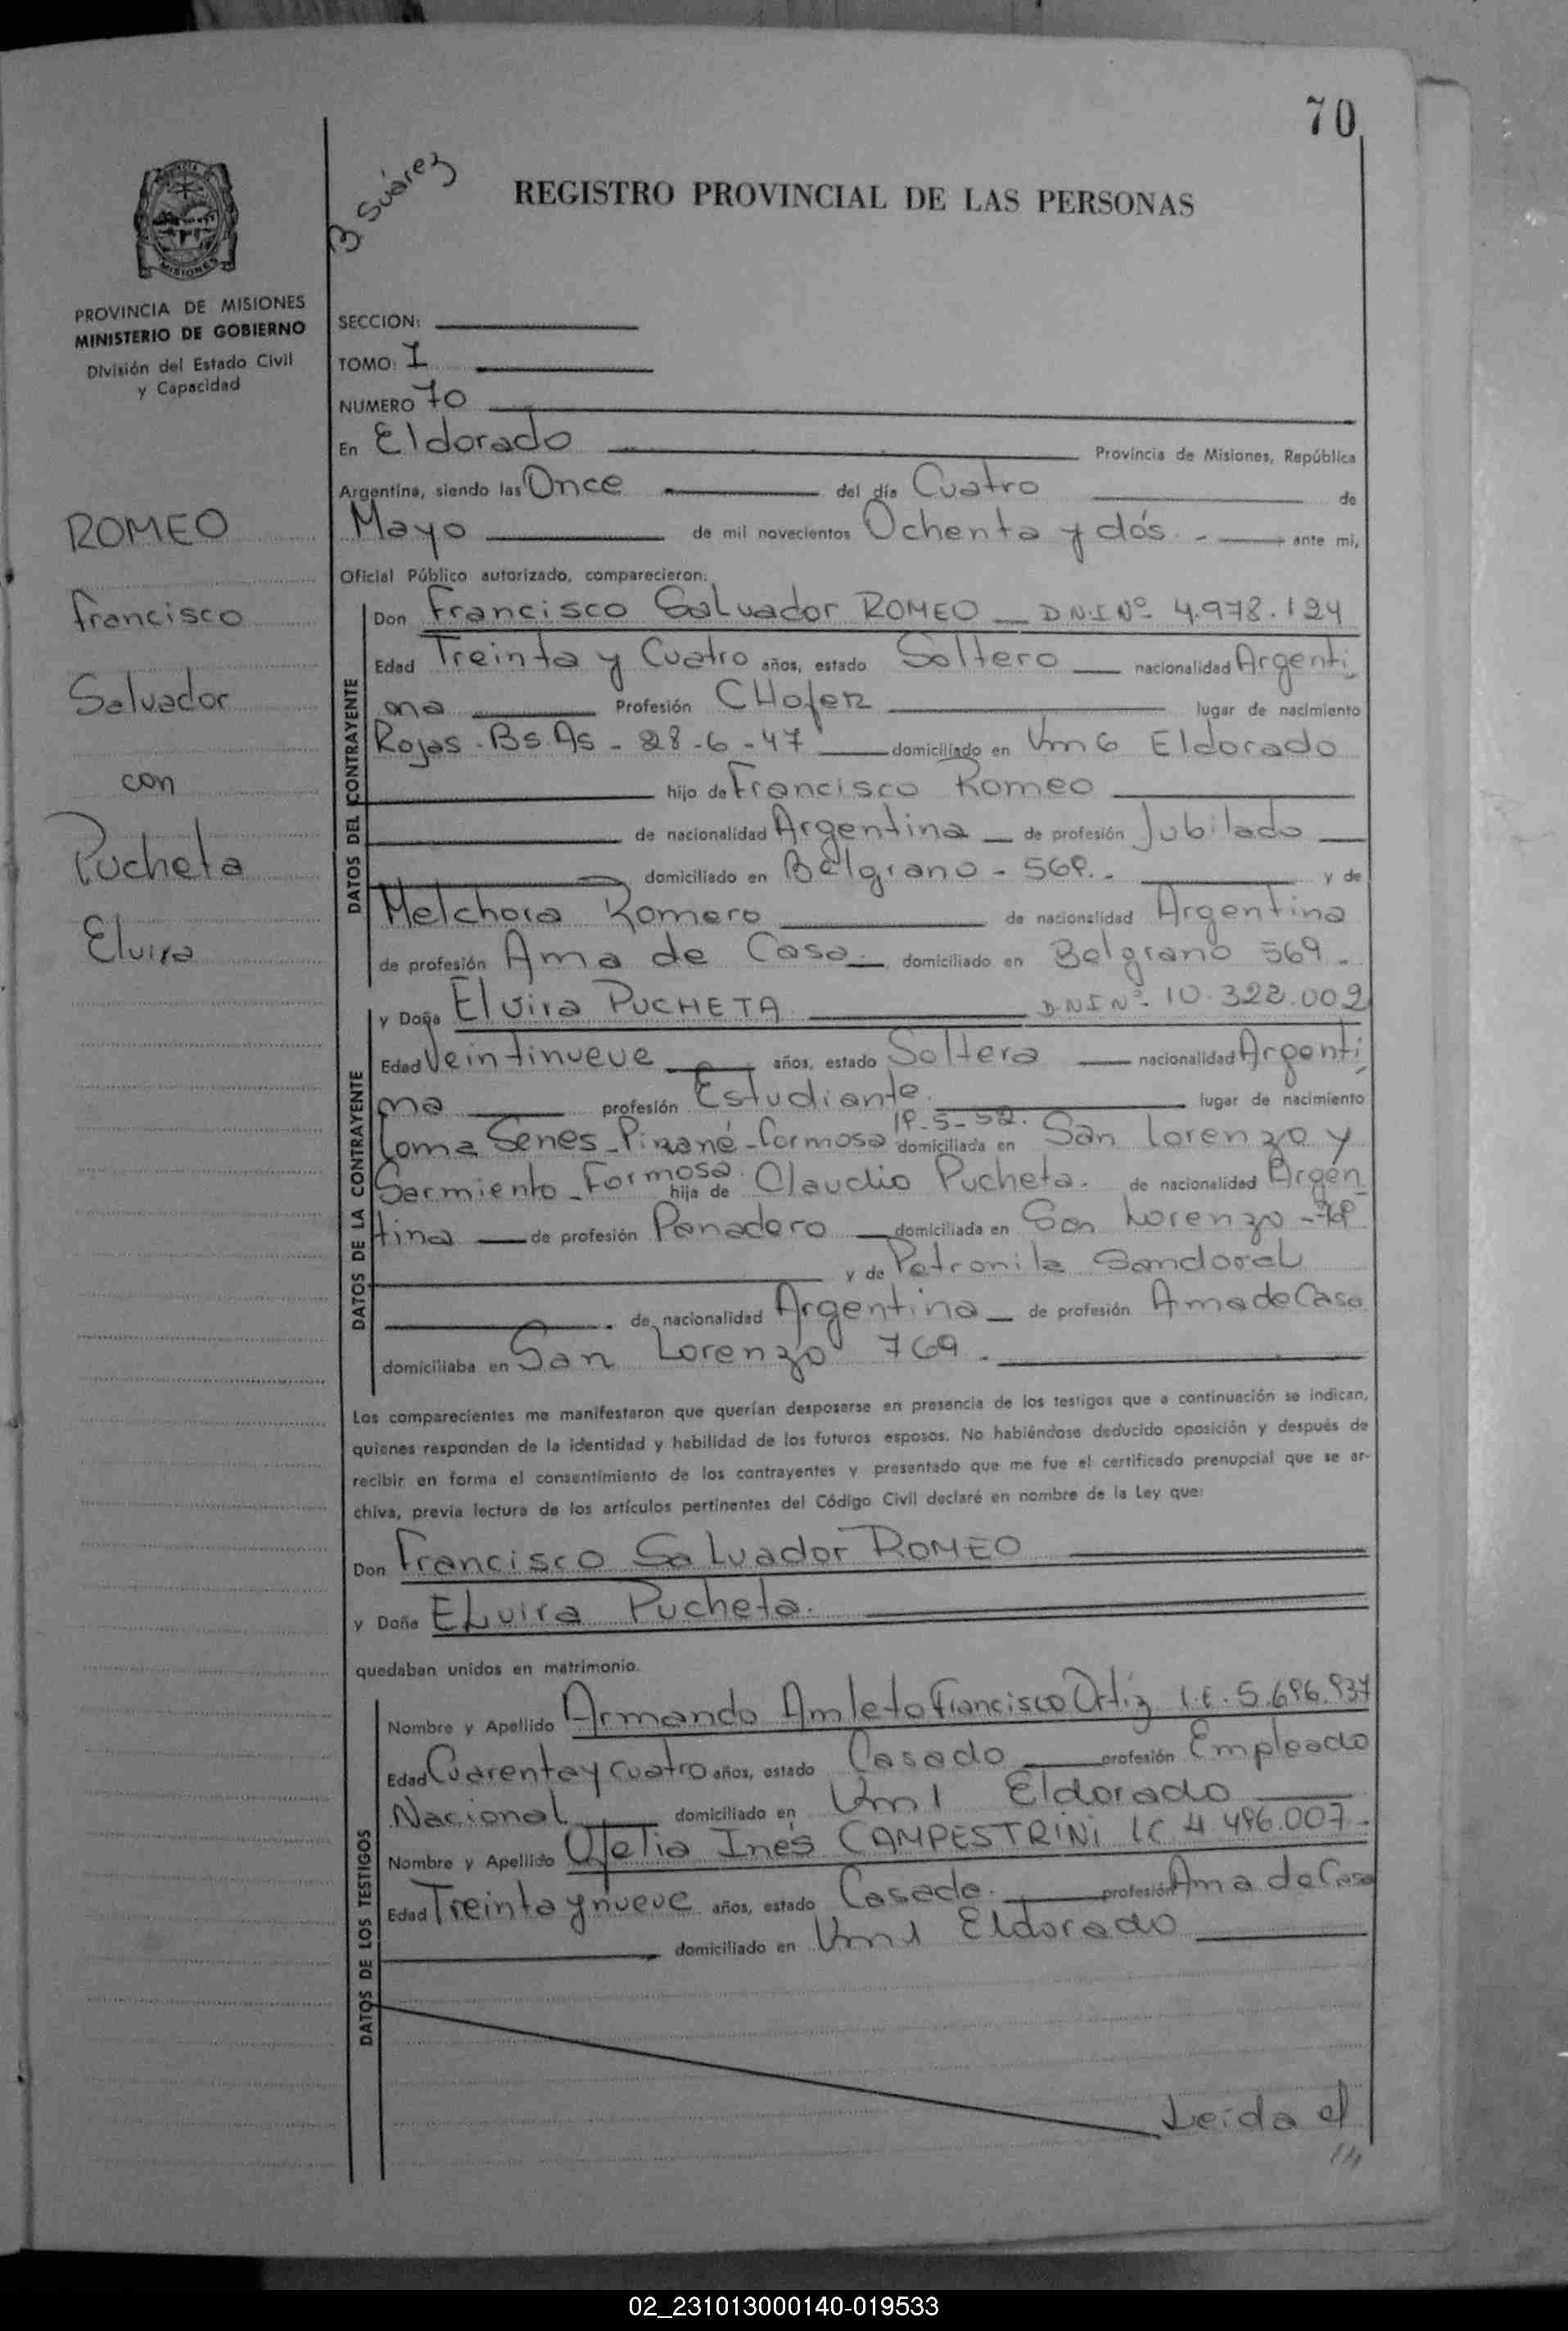 70
B Suárez
REGISTRO PROVINCIAL DE LAS PERSONAS
MISIONES
PROVINCIA DE MISIONES
MINISTERIO DE GOBIERNO
División del Estado Civil
y Capacidad
ROMEO
Francisco
Salvador
con
Pucheta
Elvira
SECCION:
TOMO: I
NUMERO 70
En Eldorado Provincia de Misiones, República
Argentina, siendo las Once del día Cuatro de
Mayo de mil novecientos Ochenta y dós. - ante mi,
Oficial Público autorizado, comparecieron:
DATOS DEL CONTRAYENTE
Don Francisco Salvador ROMEO D.N.I Nº 4.978.124
Edad Treinta y Cuatro años, estado Soltero nacionalidad Argenti
na Profesión CHofer lugar de nacimiento
Rojas - Bs. As - 28-6-47 domiciliado en Km 6 Eldorado
hijo de Francisco Romeo
de nacionalidad Argentina de profesión Jubilado
domiciliado en Belgrano - 569. - y de
Melchora Romero de nacionalidad Argentina
de profesión Ama de Casa domiciliado en Belgrano 569. -
DATOS DE LA CONTRAYENTE
y Doña Elvira PUCHETA D.N.I Nº 10.322.002
Edad Veintinueve años, estado Soltera nacionalidad Argenti
na profesión Estudiante. lugar de nacimiento
Loma Senes - Pirané - Formosa 19-5-52. domiciliada en San Lorenzo y
Sarmiento - Formosa. hija de Claudio Pucheta. de nacionalidad Argén
tina de profesión Panadero domiciliada en San Lorenzo -
y de Petronila Sandoval
de nacionalidad Argentina de profesión Ama de Casa
domiciliaba en San Lorenzo 769. -
Los comparecientes me manifestaron que querían desposarse en presencia de los testigos que a continuación se indican,
quienes responden de la identidad y habilidad de los futuros esposos. No habiéndose deducido oposición y después de
recibir en forma el consentimiento de los contrayentes y presentado que me fue el certificado prenupcial que se ar-
chiva, previa lectura de los artículos pertinentes del Código Civil declaré en nombre de la Ley que:
Don Francisco Salvador ROMEO
y Doña ELvira Pucheta.
quedaban unidos en matrimonio.
DATOS DE LOS TESTIGOS
Nombre y Apellido Armando Amleto Francisco Ortíz L.E. 5.696.937
Edad Cuarenta y Cuatro años, estado Casado profesión Empleado
Nacional domiciliado en Km 1 Eldorado
Nombre y Apellido Ofelia Inés CAMPESTRINI LC 4.496.007. -
Edad Treinta y nueve años, estado Casada. profesión Ama de Casa
domiciliado en Km 1 Eldorado
Leida el
02_231013000140-019533